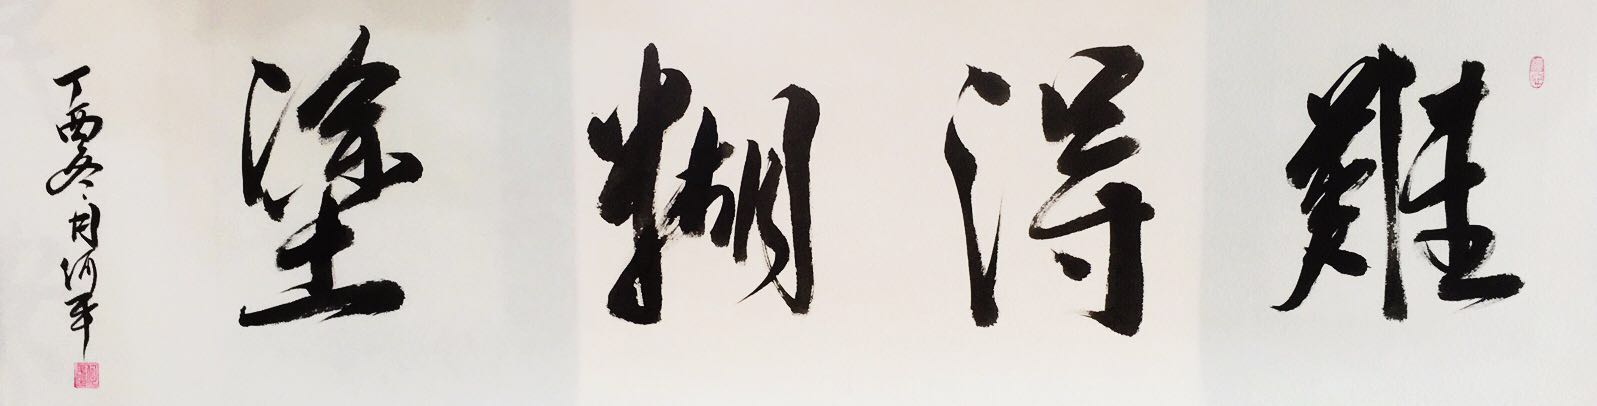 難得糊塗
丁酉冬月河平